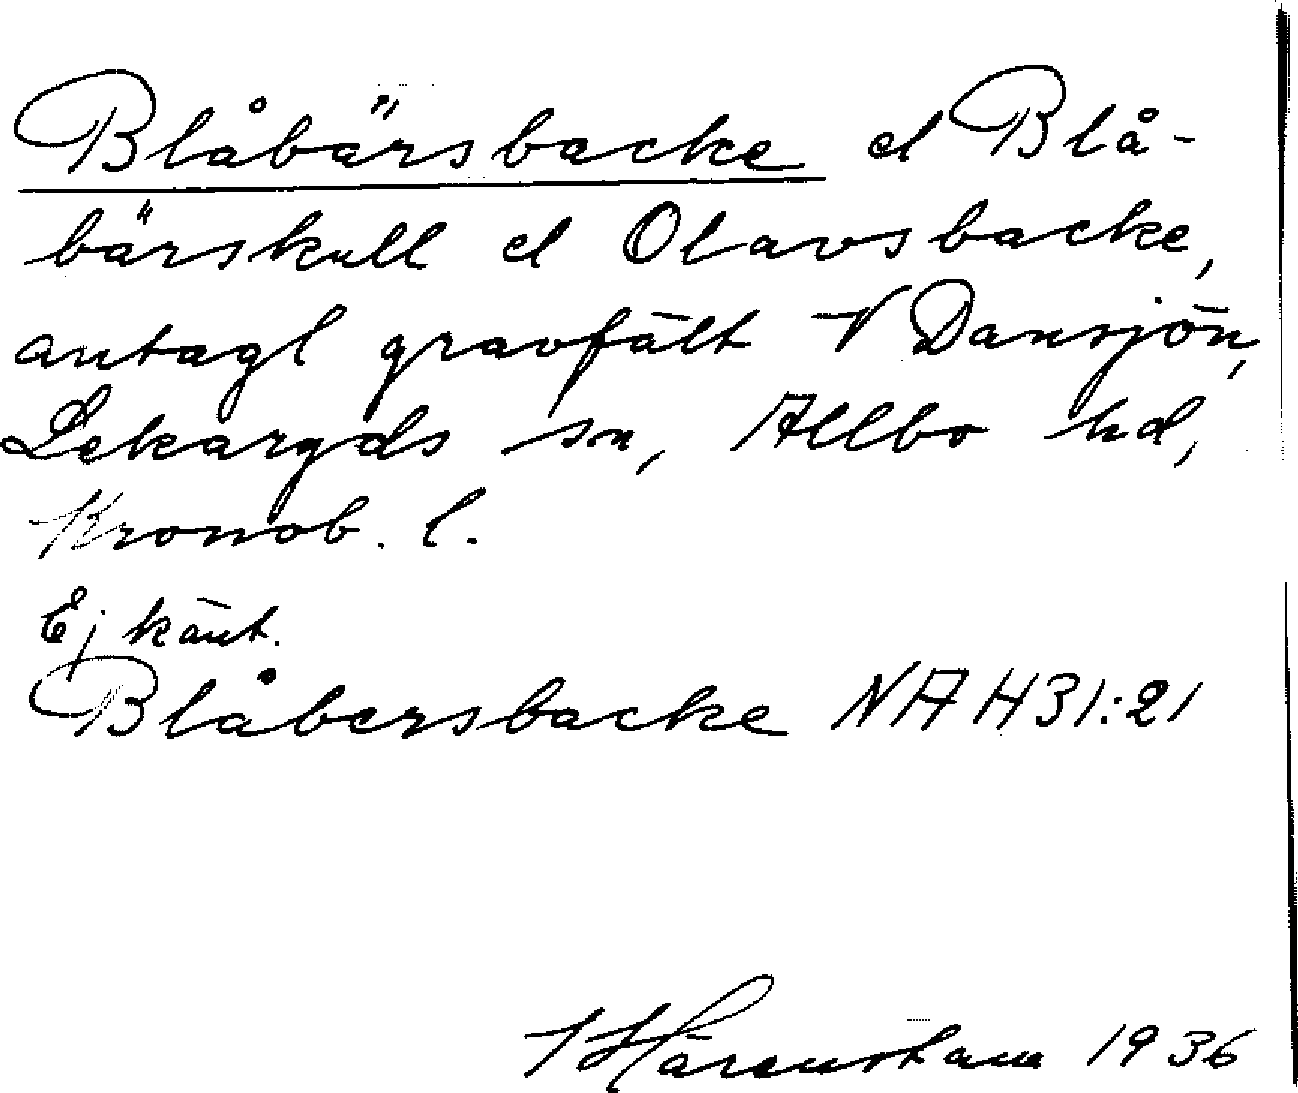 Blåbärsbacke el Blå-
bärskull el Olavsbacke,
antagl gravfält V Dansjön,
Lekaryds sn, Allbo hd,
Kronob. l.
Ej känt.
Blåbersbacke NA H31:21
I Härenstam 1936